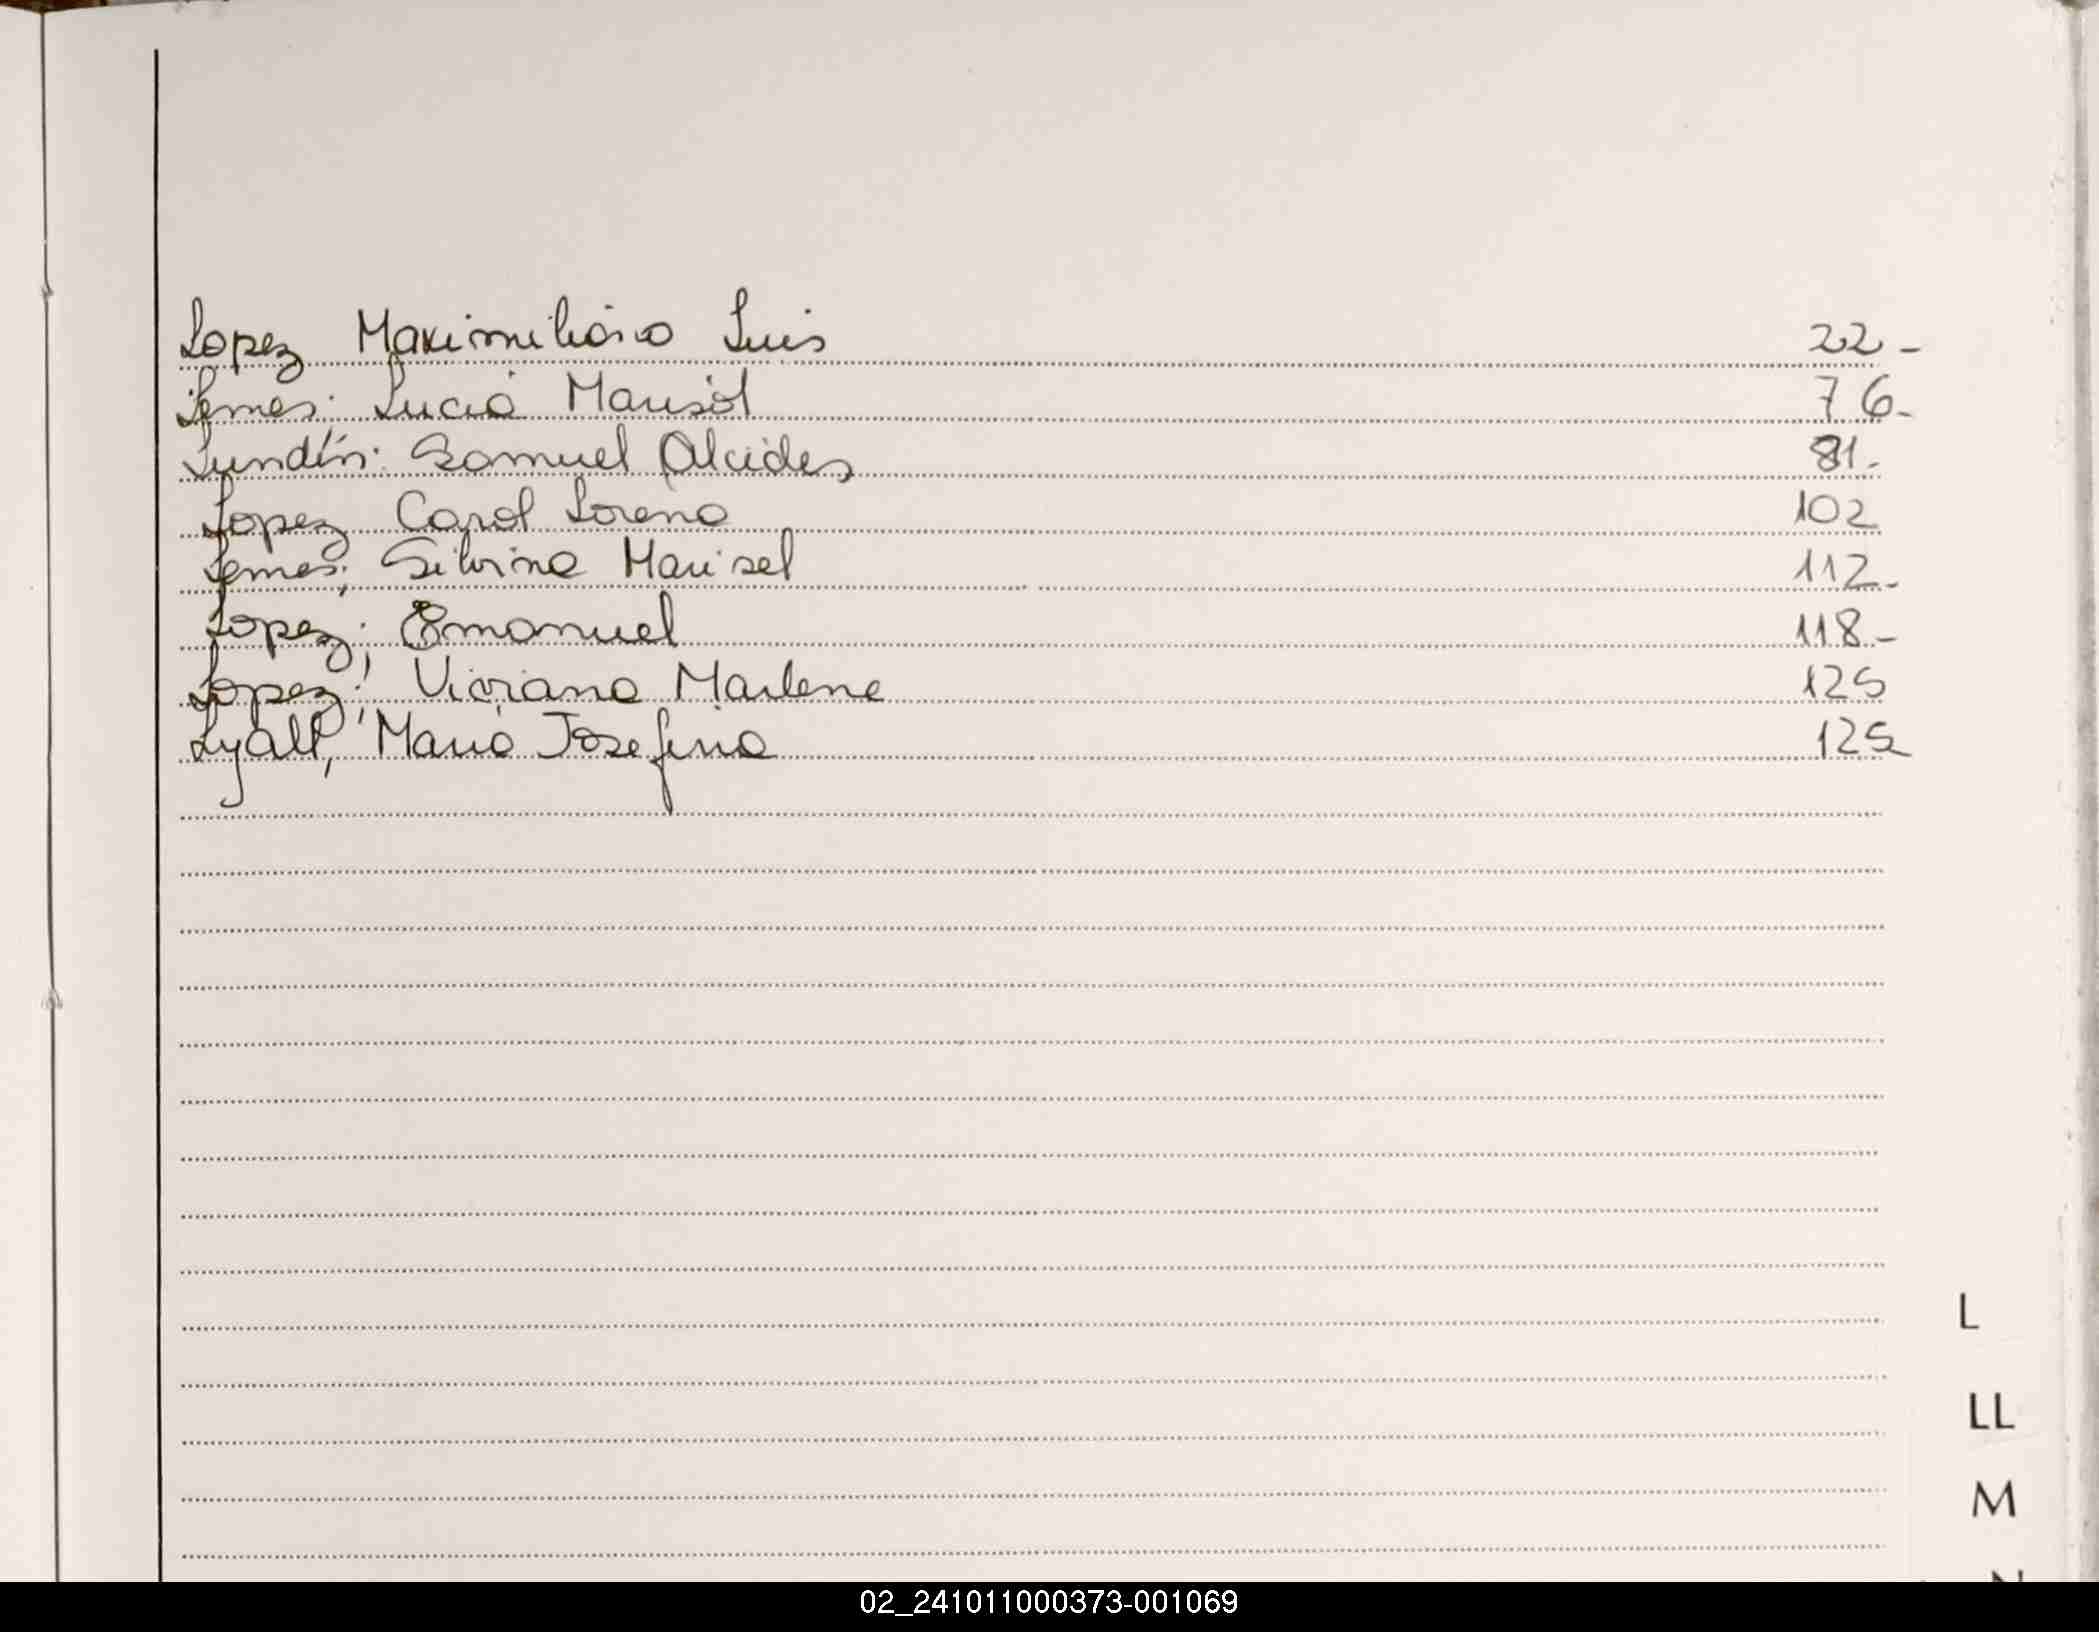 Lopez Maximiliano Luis 22-
Lemes: Lucia Marisol 76-
Lundín: Samuel Alcides 81-
Lopez Carol Lorena 102
Lemes; Silvina Marisel 112-
Lopez; Emanuel 118-
Lopez; Viviana Marlene 125
Lyall, Maria Josefina 125
L
LL
M
N
02_241011000373-001069